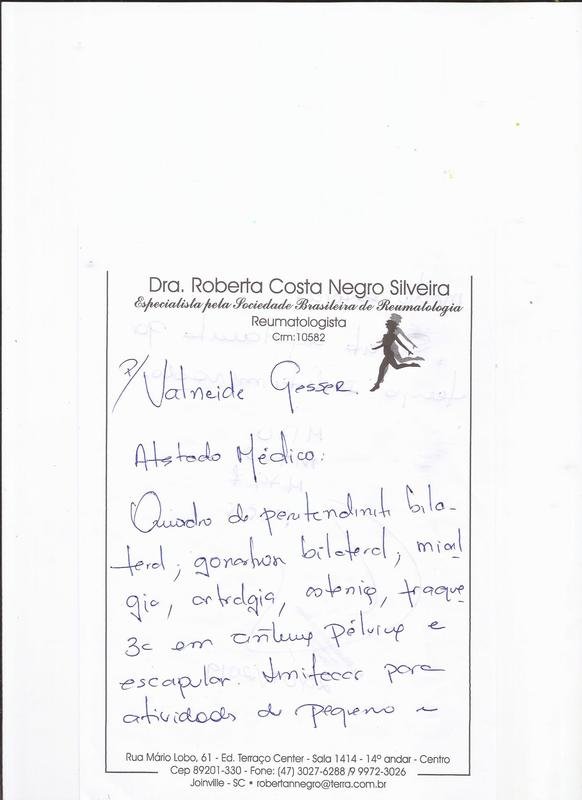 Dra. Roberta Costa Negro Silveira
Especialista pela Sociedade Brasileira de Reumatologia
Reumatologista
Crm:10582
P/ Valneide Gesser.
Atestado Médico:
Quadro de peritendiniti bila-
teral; gonartron bilateral; mial
gia, artralgia, astenia, fraque
za em cinturas pélvica e
escapular. Limitacar para
atividades de pequeno e
Rua Mário Lobo, 61 - Ed. Terraço Center - Sala 1414 - 14º andar - Centro
Cep 89201-330 - Fone: (47) 3027-6288 /9 9972-3026
Joinville - SC • robertannegro@terra.com.br